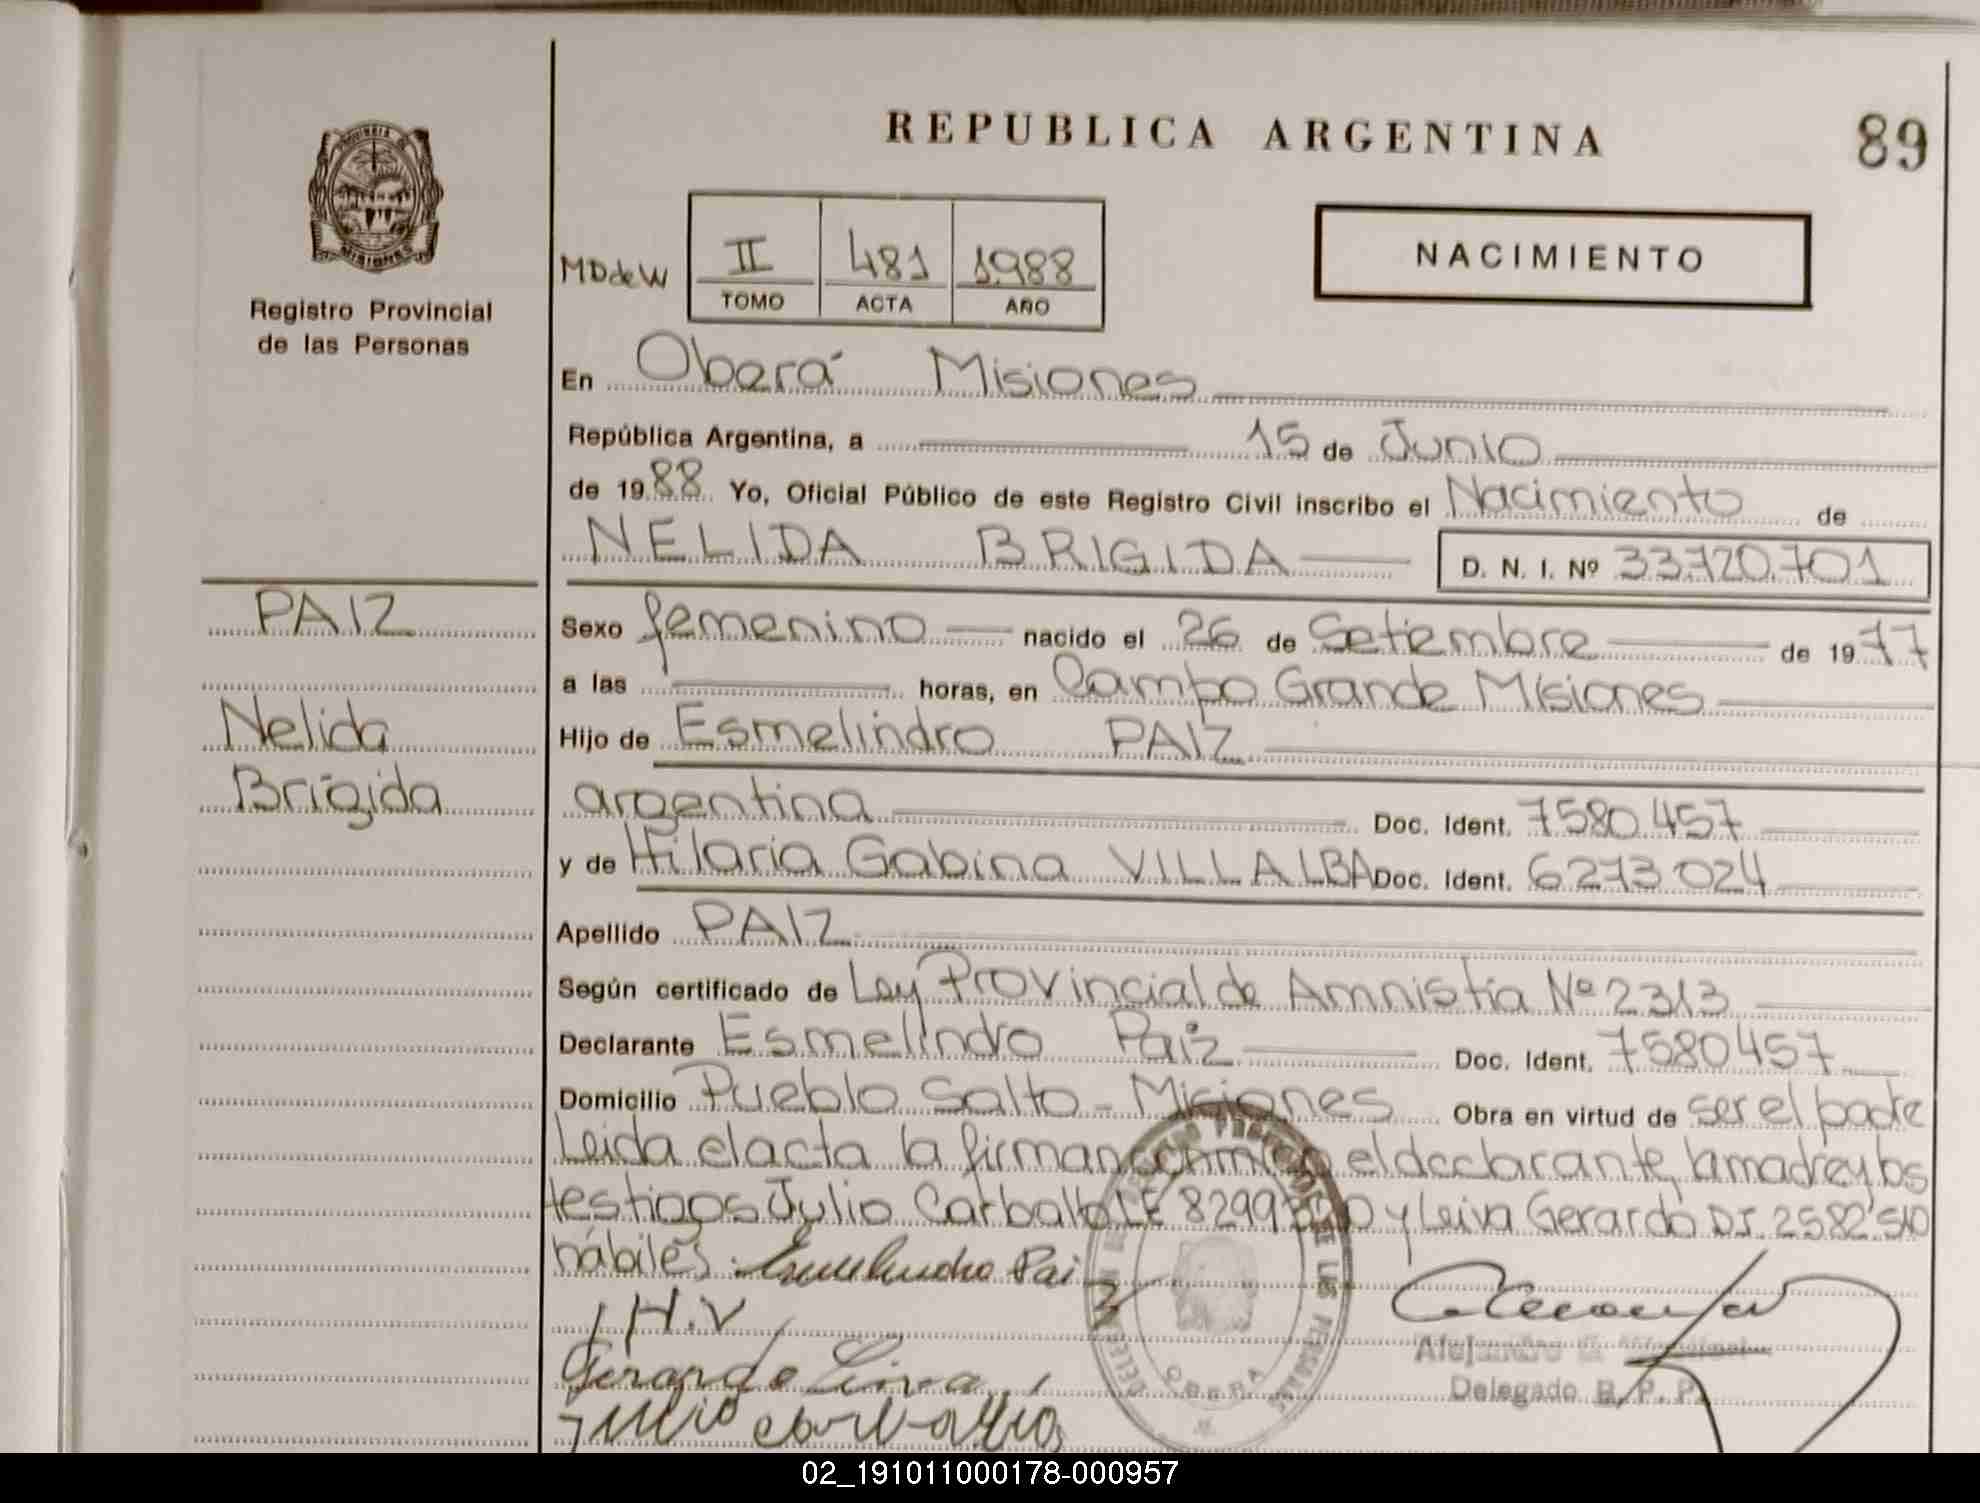 REPUBLICA ARGENTINA
89
PROVINCIA
MISIONES
Registro Provincial
de las Personas
MDdeW
II 481 1.988
TOMO ACTA AÑO
NACIMIENTO
En Oberá Misiones
República Argentina, a 15 de Junio
de 1988 Yo, Oficial Público de este Registro Civil inscribo el Nacimiento de
NELIDA BRIGIDA D. N. I. Nº 33.720.701
PAIZ
Nelida
Brigida
Sexo femenino nacido el 26 de Setiembre de 1977
a las horas, en Campo Grande Misiones
Hijo de Esmelindro PAIZ
argentina Doc. Ident. 7580.457
y de Hilaria Gabina VILLALBA Doc. Ident. 6273024
Apellido PAIZ
Según certificado de Ley Provincial de Amnistía Nº 2313
Declarante Esmelindro Paiz Doc. Ident. 7580457
Domicilio Pueblo Salto - Misiones Obra en virtud de ser el padre
Leida el acta la firman conmigo el declarante, la madre y los
testigos Julio Carballo LE y Leiva Gerardo DI. 2582510
hábiles. Esmelindro Paiz
H.V
Gerardo Leiva
Julio Carballo
DE LAS PERSONAS
OBERA
Alejandro
Delegado R. P. P.
02_191011000178-000957